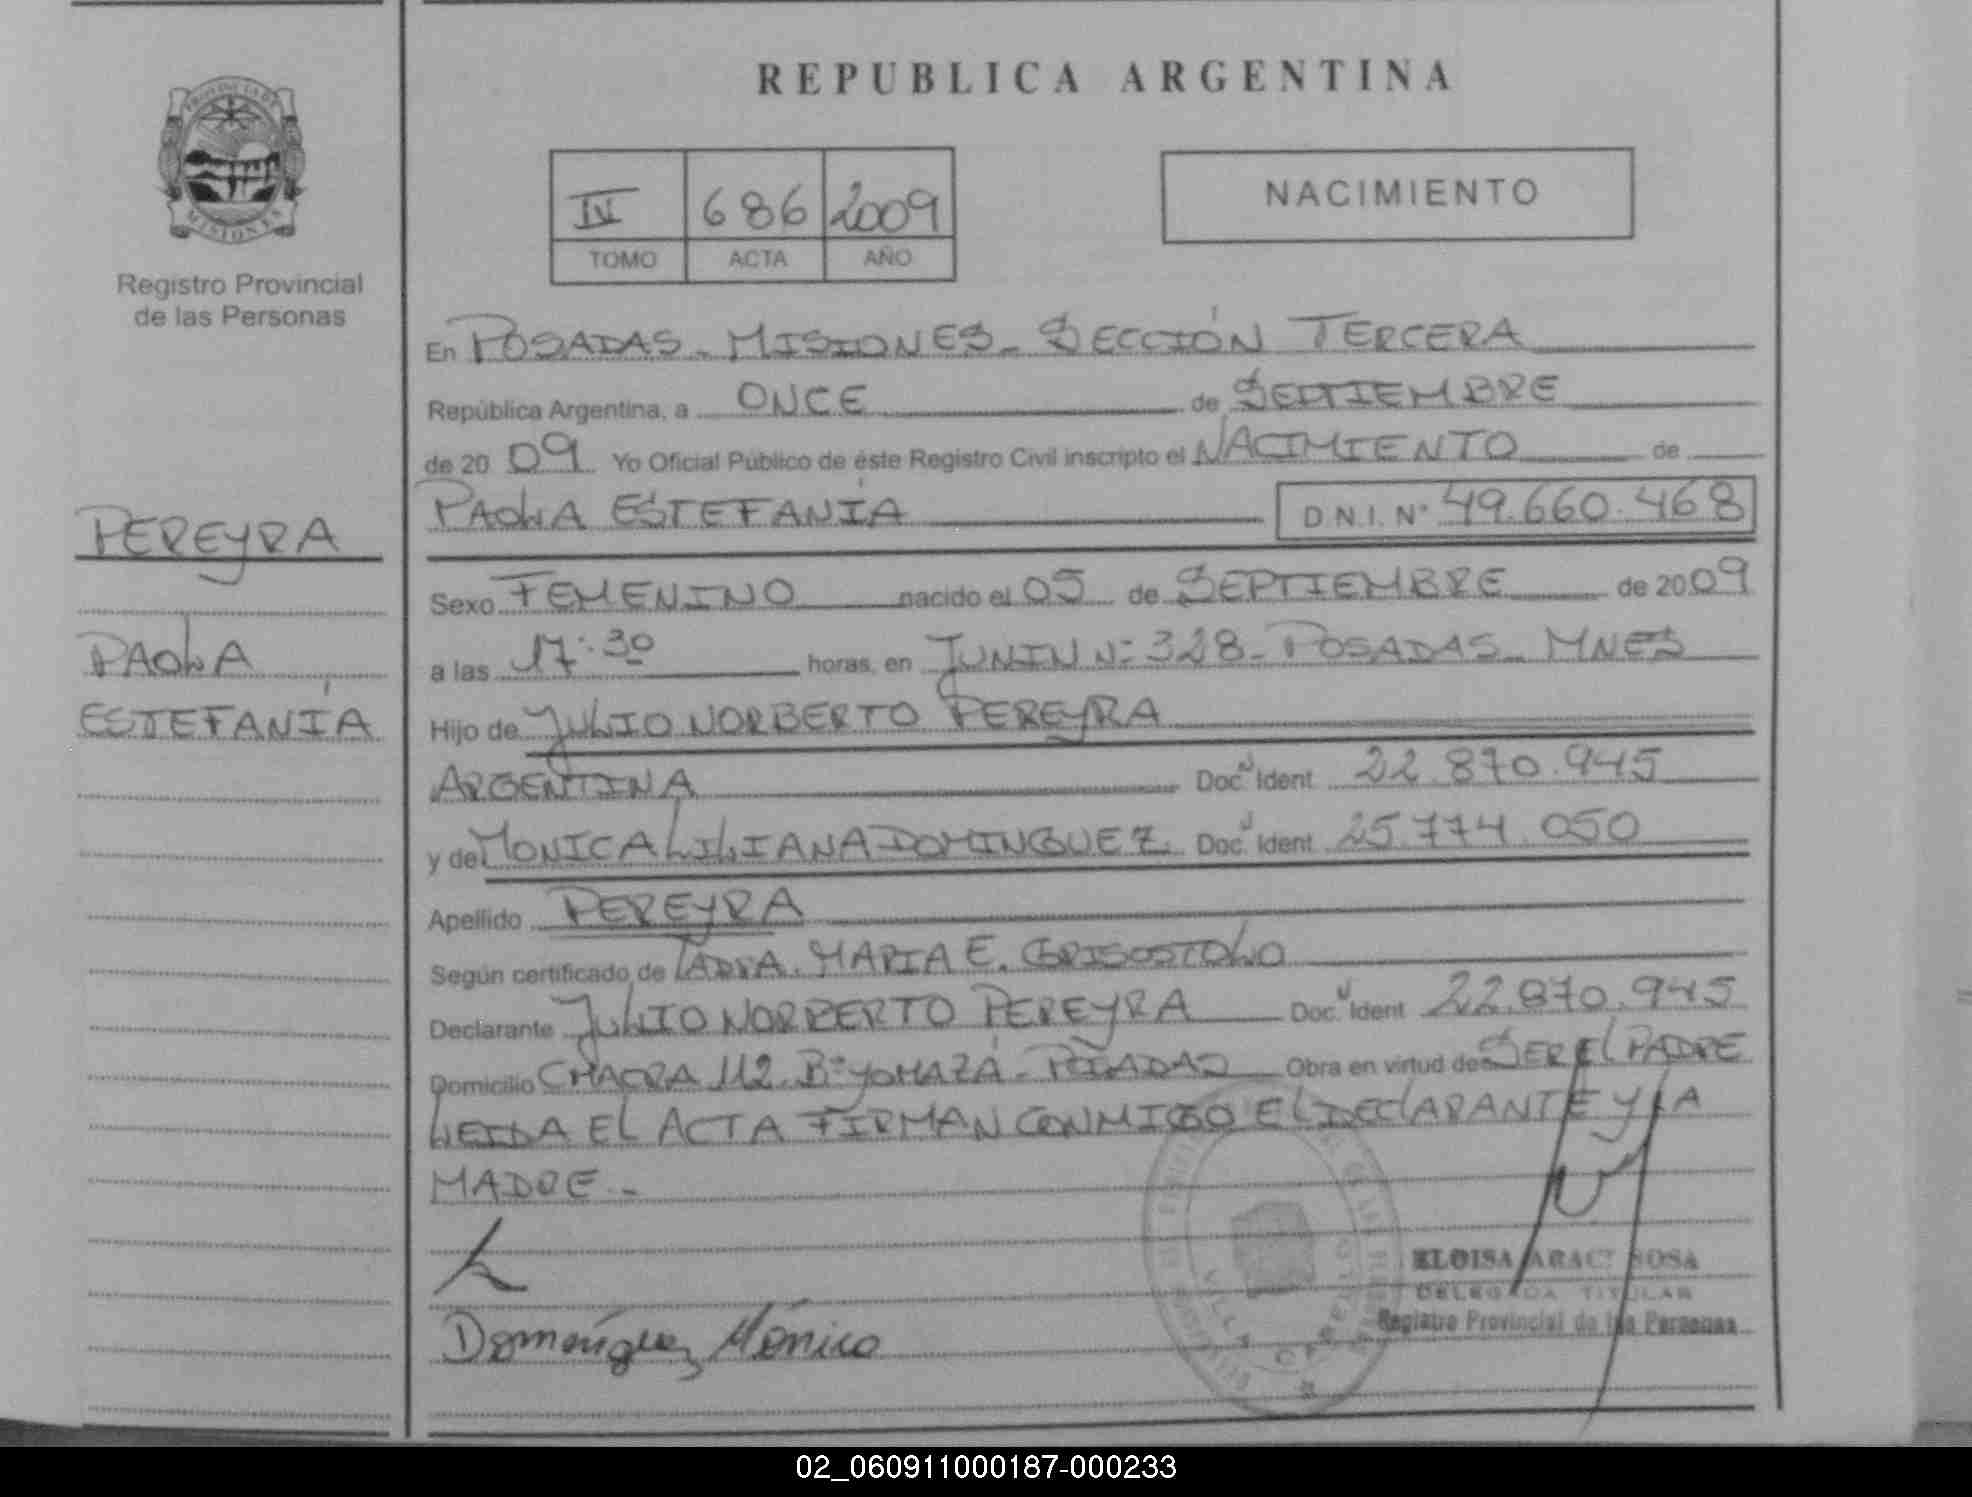 PROVINCIA DE
MISIONES
Registro Provincial
de las Personas
PEREYRA
PAOLA
ESTEFANÍA
REPUBLICA ARGENTINA
IV 686 2009
TOMO ACTA AÑO
NACIMIENTO
En POSADAS - MISIONES - SECCIÓN TERCERA
República Argentina, a ONCE de SEPTIEMBRE
de 20 09 Yo Oficial Público de éste Registro Civil inscripto el NACIMIENTO de
PAOLA ESTEFANÍA D.N.I. Nº 49.660.468
Sexo FEMENINO nacido el 05 de SEPTIEMBRE de 2009
a las 17:30 horas, en JUNIN Nº 328 - POSADAS - MNES
Hijo de JULIO NORBERTO PEREYRA
ARGENTINA Doc. Ident 22.870.945
y de MONICA LILIANA DOMINGUEZ Doc. Ident 25.774.050
Apellido PEREYRA
Según certificado de MARIA E. GRISOSTOLO
Declarante JULIO NORBERTO PEREYRA Doc. Ident 22.870.945
Domicilio CHACRA 112 Bº YOHAZÁ - POSADAS Obra en virtud de SER EL PADRE
LEIDA EL ACTA FIRMAN CONMIGO EL DECLARANTE Y LA
MADRE -
Domínguez Mónica
ELOISA SOSA
DELEGADA TITULAR
Registro Provincial de las Personas
02_060911000187-000233